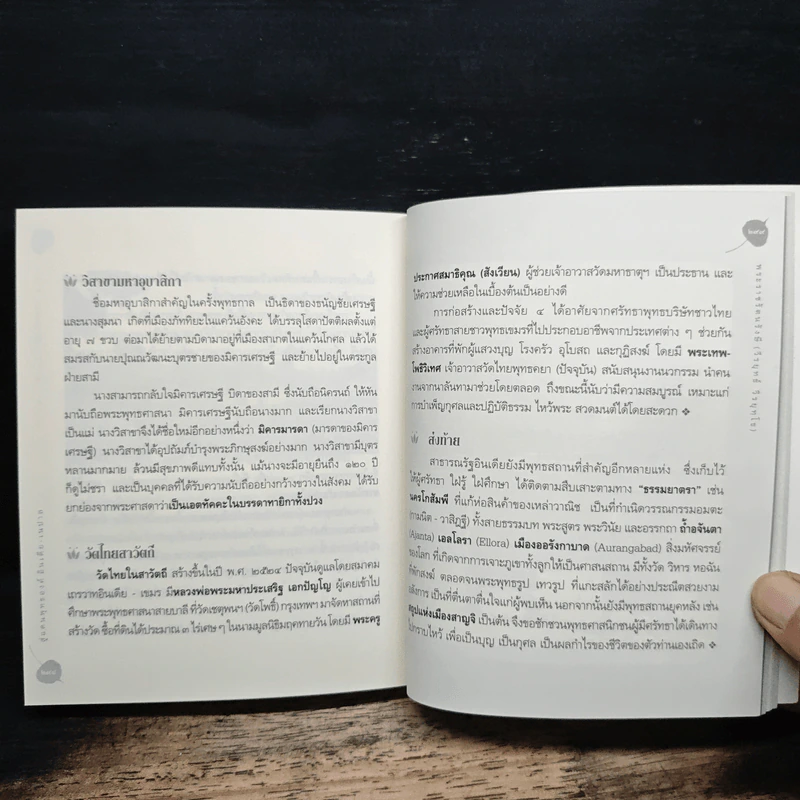 วิสาขามหาอุบาสิกา
ชื่อมหาอุบาสิกาสำคัญในครั้งพุทธกาล เป็นธิดาของธนัญชัยเศรษฐี
และนางสุมนา เกิดที่เมืองภัททิยะในแคว้นอังคะ ได้บรรลุโสดาปัตติผลตั้งแต่
อายุ ๗ ขวบ ต่อมาได้ย้ายตามบิดามาอยู่ที่เมืองสาเกตในแคว้นโกศล แล้วได้
สมรสกับนายปุณณวัฒนะบุตรชายของมิคารเศรษฐี และย้ายไปอยู่ในตระกูล
ฝ่ายสามี
นางสามารถกลับใจมิคารเศรษฐี บิดาของสามี ซึ่งนับถือนิครนถ์ ให้หัน
มานับถือพระพุทธศาสนา มิคารเศรษฐีนับถือนางมาก และเรียกนางวิสาขา
เป็นแม่ นางวิสาขาจึงได้ชื่อใหม่อีกอย่างหนึ่งว่า มิคารมารดา (มารดาของมิคาร
เศรษฐี) นางวิสาขาได้อุปถัมภ์บำรุงพระภิกษุสงฆ์อย่างมาก นางวิสาขามีบุตร
หลานมากมาย ล้วนมีสุขภาพดีแทบทั้งนั้น แม้นางจะมีอายุยืนถึง ๑๒๐ ปี
ก็ดูไม่ชรา และเป็นบุคคลที่ได้รับความนับถืออย่างกว้างขวางในสังคม ได้รับ
ยกย่องจากพระศาสดาว่าเป็นเอตทัคคะในบรรดาทายิกาทั้งปวง
วัดไทยสาวัตถี
วัดไทยในสาวัตถี สร้างขึ้นในปี พ.ศ. ๒๕๒๔ ปัจจุบันดูแลโดยสมาคม
เถรวาทอินเดีย - เขมร มีหลวงพ่อพระมหาประเสริฐ เอกปัญโญ ผู้เคยเข้าไป
ศึกษาพระพุทธศาสนาสายบาลี ที่วัดเชตุพนฯ (วัดโพธิ์) กรุงเทพฯ มาจัดหาสถานที่
สร้างวัด ซื้อที่ดินได้ประมาณ ๓ ไร่เศษ ๆ ในนามมูลนิธิมฤคทายวัน โดยมี พระครู
ประกาศสมาธิคุณ (สังเวียน) ผู้ช่วยเจ้าอาวาสวัดมหาธาตุฯ เป็นประธาน และ
ให้ความช่วยเหลือในเบื้องต้นเป็นอย่างดี
การก่อสร้างและปัจจัย ๔ ได้อาศัยจากศรัทธาพุทธบริษัทชาวไทย
และผู้ศรัทธาสายชาวพุทธเขมรที่ไปประกอบอาชีพจากประเทศต่าง ๆ ช่วยกัน
สร้างอาคารที่พักผู้แสวงบุญ โรงครัว อุโบสถ และกุฏิสงฆ์ โดยมี พระเทพ-
โพธิวิเทศ เจ้าอาวาสวัดไทยพุทธคยา (ปัจจุบัน) สนับสนุนงานนวกรรม นำคน
งานจากนาลันทามาช่วยโดยตลอด ถึงขณะนี้นับว่ามีความสมบูรณ์ เหมาะแก่
การบำเพ็ญกุศลและปฏิบัติธรรม ไหว้พระ สวดมนต์ได้โดยสะดวก ❖
ส่งท้าย
สาธารณรัฐอินเดียยังมีพุทธสถานที่สำคัญอีกหลายแห่ง ซึ่งเก็บไว้
ให้ผู้ศรัทธา ใฝ่รู้ ใฝ่ศึกษา ได้ติดตามสืบเสาะตามทาง “ธรรมยาตรา” เช่น
นครโกสัมพี ที่แก้ห่อสินค้าของเหล่าวาณิช เป็นที่กำเนิดวรรณกรรมอมตะ
(กามนิต - วาสิฏฐี) ทั้งสายธรรมบท พระสูตร พระวินัย และอรรถกถา ถ้ำอจันตา
(Ajanta) เอลโลรา (Ellora) เมืองออรังกาบาด (Aurangabad) สิ่งมหัศจรรย์
ของโลก ที่เกิดจากการเจาะภูเขาทั้งลูกให้เป็นศาสนสถาน มีทั้งวัด วิหาร หอฉัน
ที่พักสงฆ์ ตลอดจนพระพุทธรูป เทวรูป ที่แกะสลักได้อย่างประณีตสวยงาม
อลังการ เป็นที่ตื่นตาตื่นใจแก่ผู้พบเห็น นอกจากนั้นยังมีพุทธสถานยุคหลัง เช่น
สถูปแห่งเมืองสาญจี เป็นต้น จึงขอชักชวนพุทธศาสนิกชนผู้มีศรัทธาได้เดินทาง
ไปกราบไหว้ เพื่อเป็นบุญ เป็นกุศล เป็นผลกำไรของชีวิตของตัวท่านเองเถิด ❖